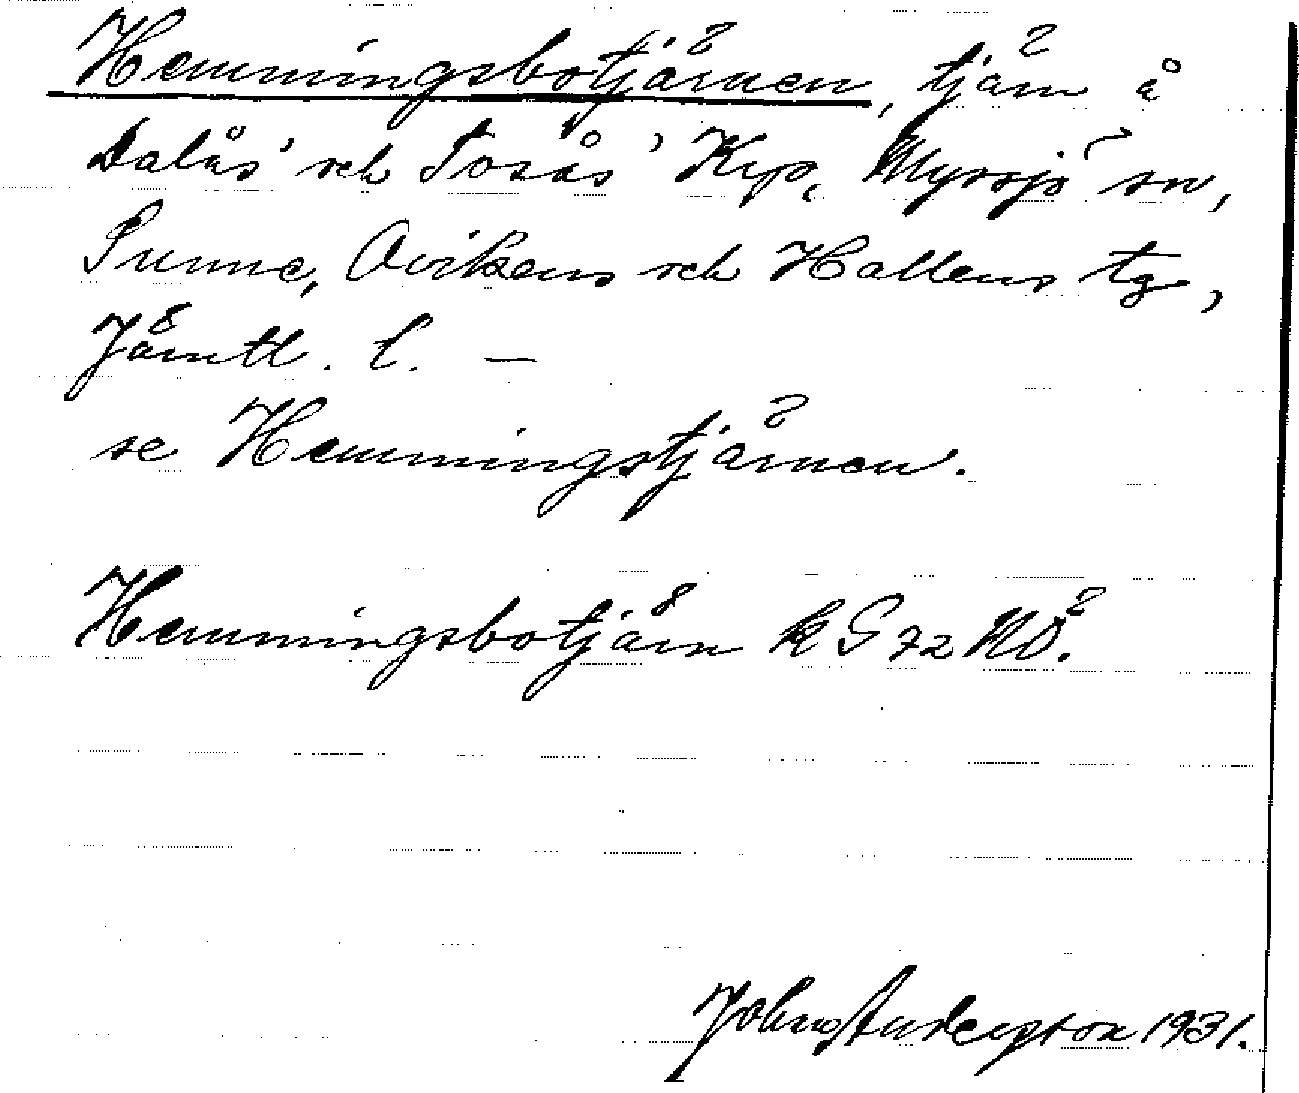 Hemmingsbotjärnen, tjärn å
Dalås' och Tosås' Krp, Myssjö sn,
Sunne, Ovikens och Hallens tg,
Jämtl. l. —
se Hemmingstjärnen.
Hemmingsbotjärn k G 72 NÖ.
Johns Andersson 1931.